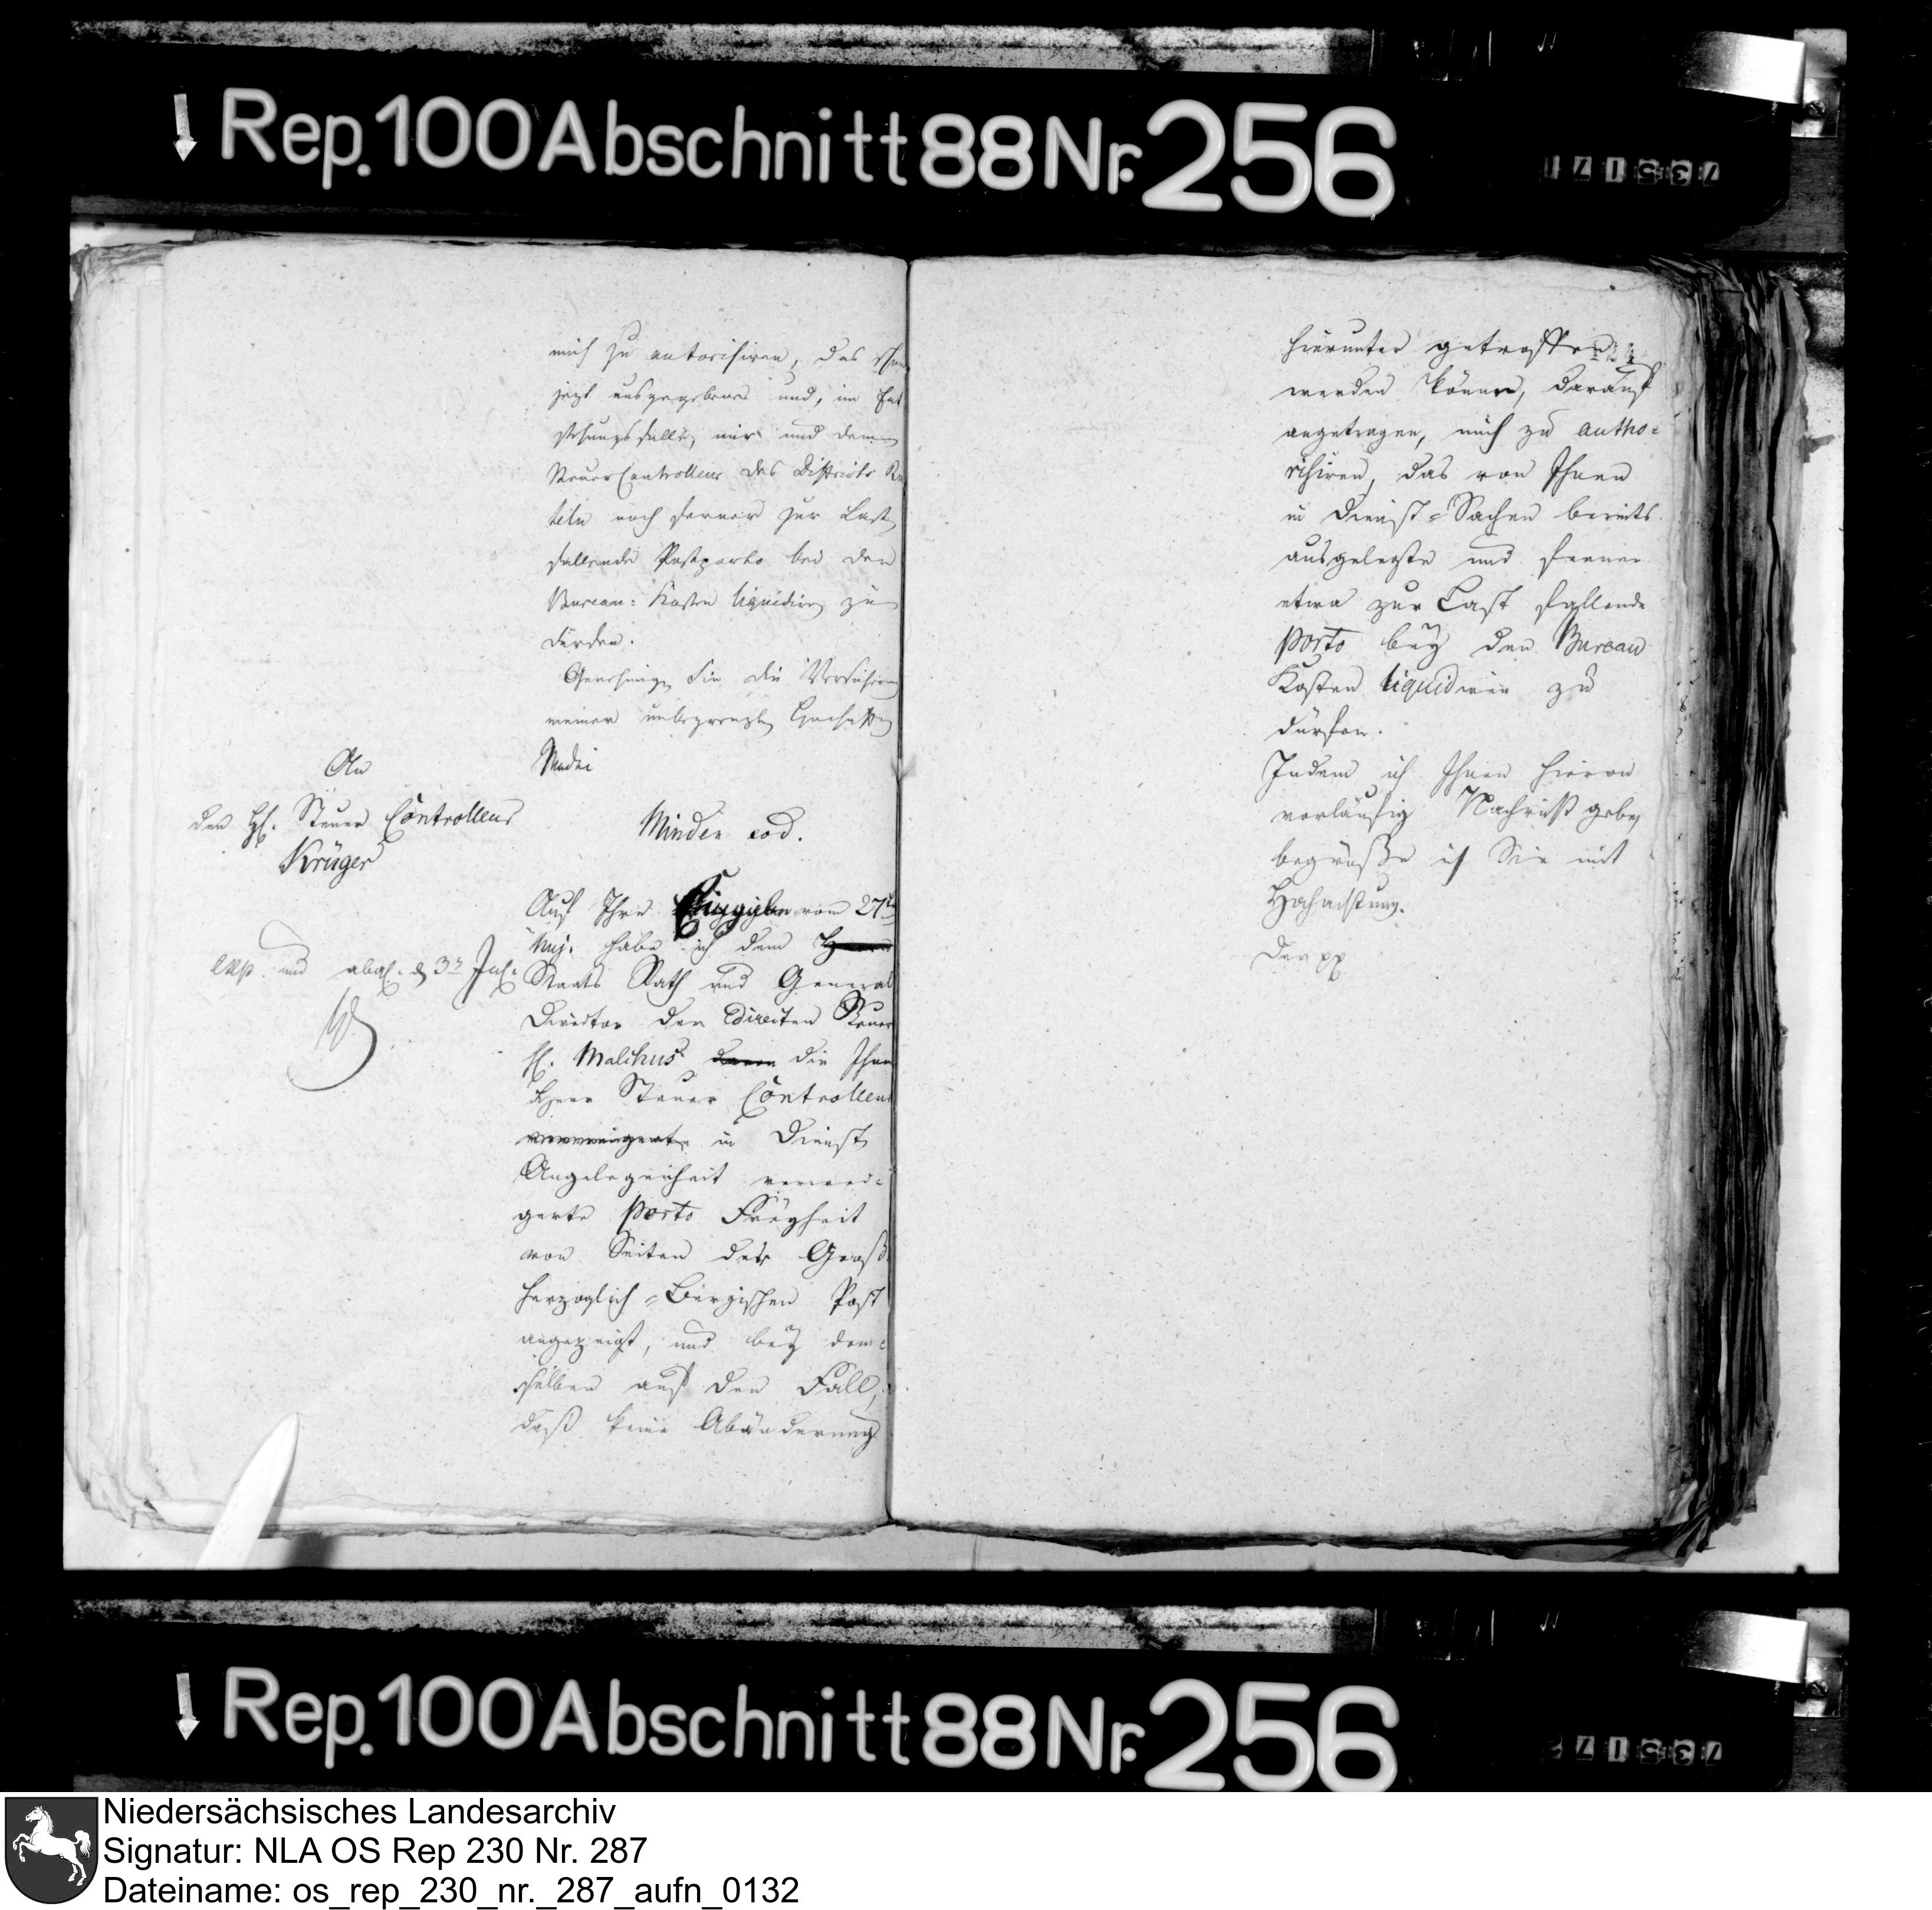 Rep. 100 Abschnitt 88 Nr. 256
735171
mich zu autorisiren, das schon
jezt ausgegebene und, im Ent
stehungsfalle, mir und dem
Steuer Controlleur des Districts Rin
teln noch ferner zur Last
fallende Postporto bei den
Bureau-Kosten liquidiren zu
dürfen.
Genehmigen Sie die Versicherung
meiner unbegrenzten Hochachtung
An
den H. Steuer Controlleur
Krüger
exp. und abges. d 3t Jul.
Minden eod.
Auf Ihre Eingabe vom 27t
huj. habe ich dem Herrn
Staats Rath und General
Director der Directen Steuer
H. Malchus die Ihnen
Herr Steuer Controlleur
verweigerte in Dienst
Angelegenheit verwei-
gerte Porto Freyheit
von Seiten der Groß
herzoglich-Bergischen Post
angezeigt, und bey dem-
selben auf den Fall,
daß keine Abänderung
hierunter getroffen
werden könne, darauf
angetragen, mich zu autho-
risiren, das von Ihnen
in Dienst-Sachen bereits
ausgelegte und ferner
etwa zur Last fallende
Porto bey den Bureau
Kosten liquidiren zu
dürfen.
Indem ich Ihnen hievon
vorläufig Nachricht gebe,
begrüße ich Sie mit
Hochachtung.
Der pp
Rep. 100 Abschnitt 88 Nr. 256
735172
Niedersächsisches Landesarchiv
Signatur: NLA OS Rep 230 Nr. 287
Dateiname: os_rep_230_nr._287_aufn_0132